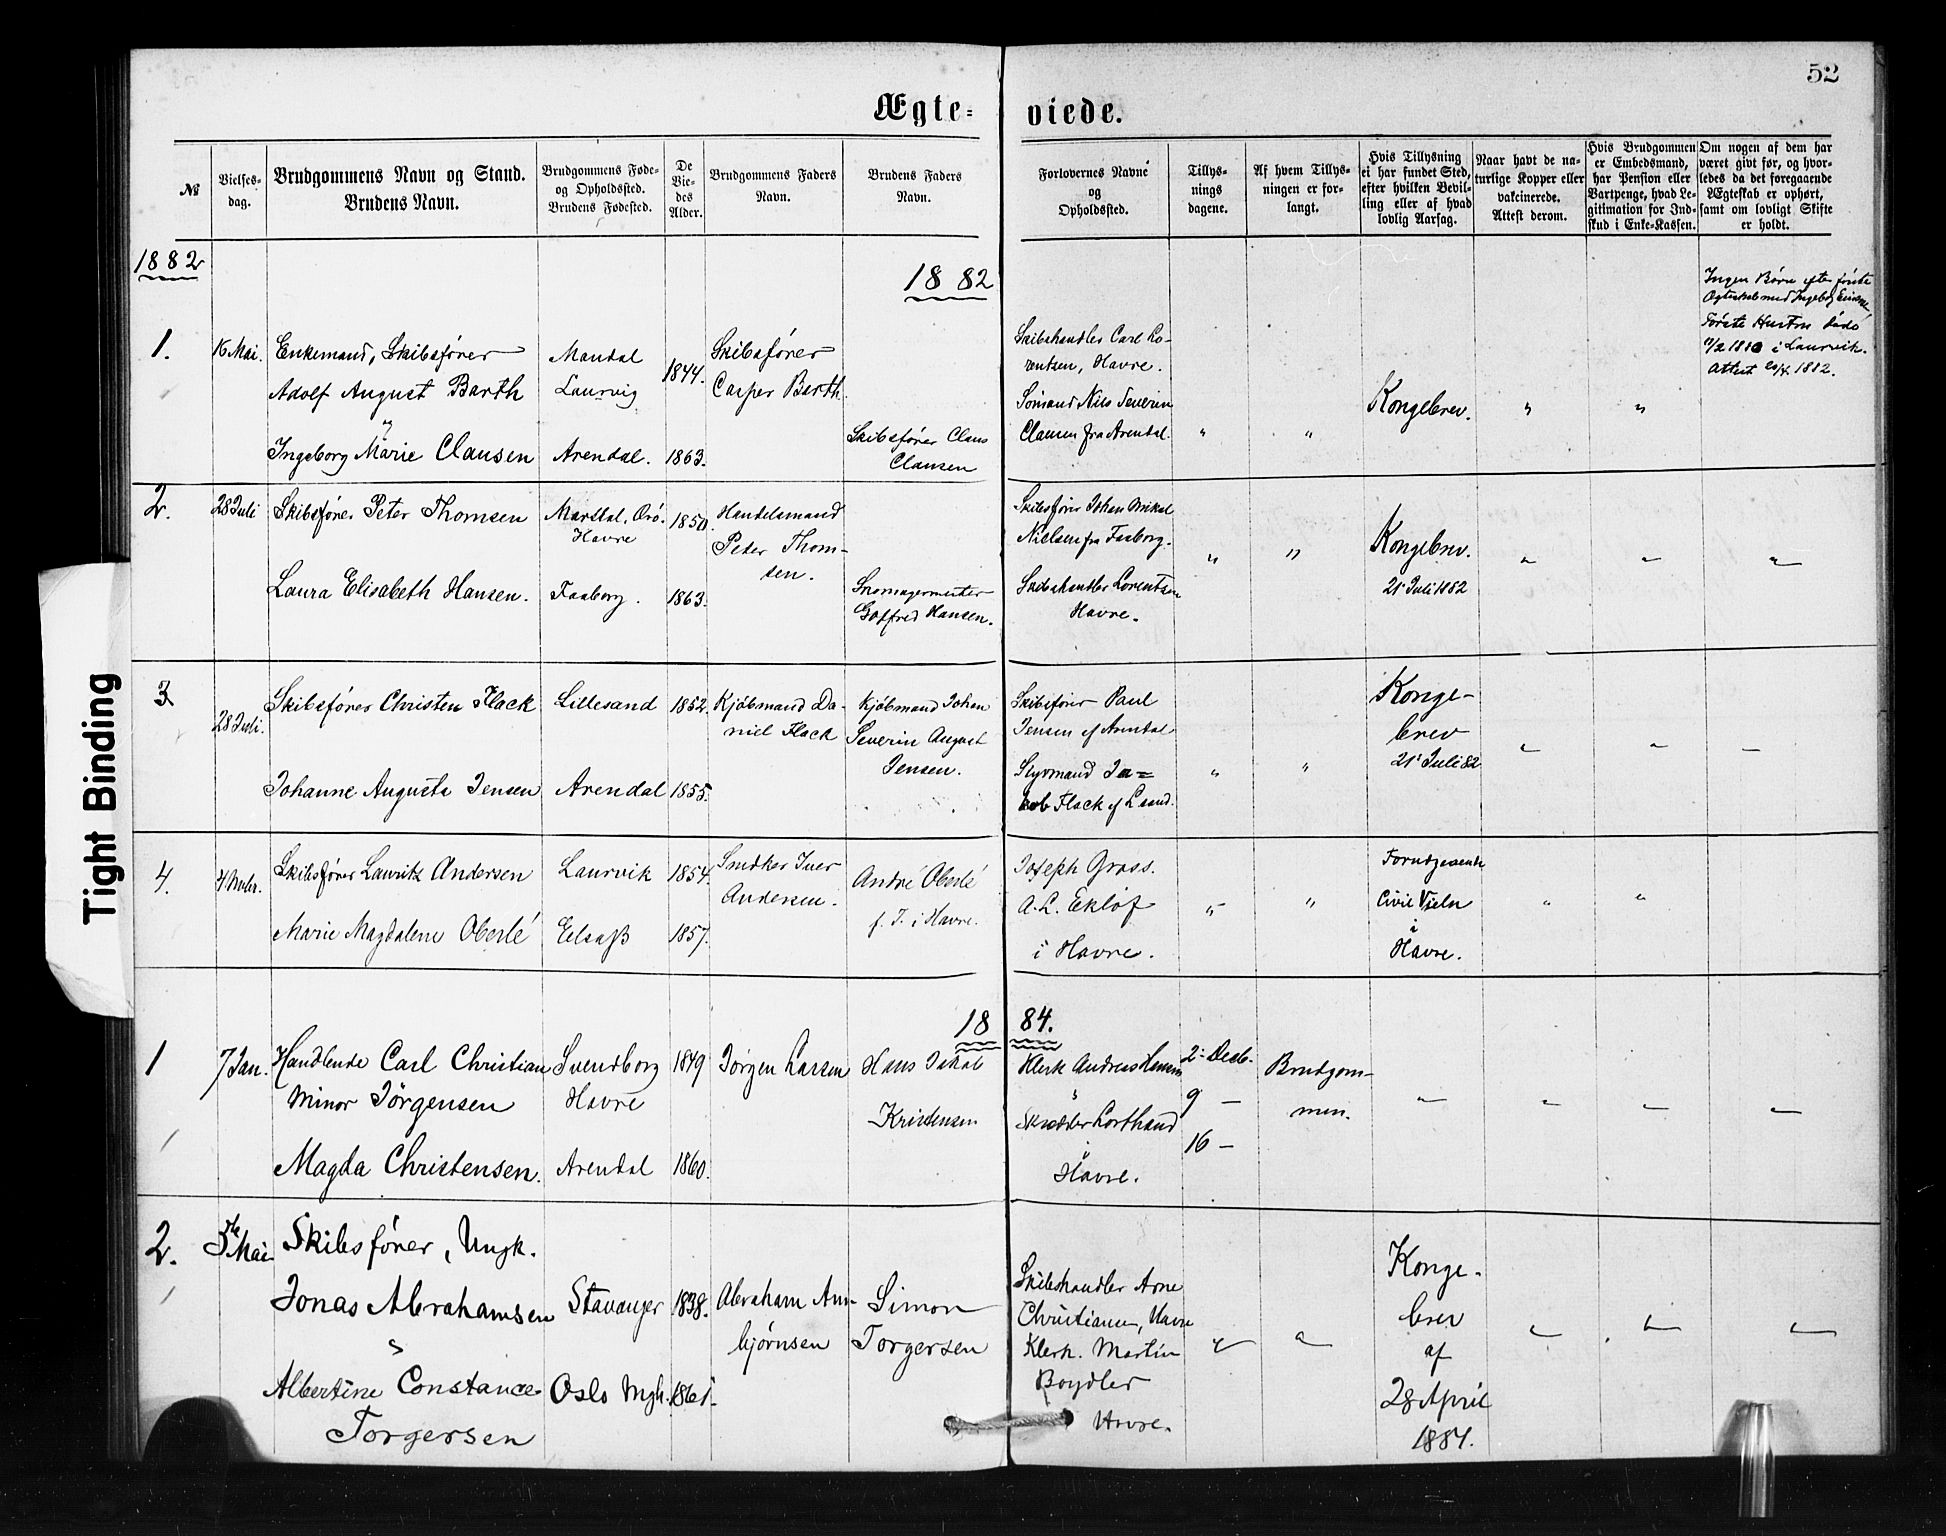 52
Ægte= viede.
№
Vielses-
dag.
Brudgommens Navn og Stand.
Brudens Navn.
Brudgommens Føde-
og Opholdssted.
Brudens Fødested.
De
Vie-
des
Alder.
Brudgommens Faders
Navn.
Brudens Faders
Navn.
Forlovernes Navne
og
Opholdssted.
Tillys-
nings
dagene.
Af hvem Tillys-
ningen er for-
langt.
Hvis Tillysning
ei har fundet Sted,
efter hvilken Bevil-
ling eller af hvad
lovlig Aarsag.
Naar havt de na-
turlige Kopper eller
vakcinerede.
Attest derom.
Hvis Brudgommen
er Embedsmand,
har Pension eller
Vartpenge, hvad Le-
gitimation for Ind-
skud i Enke-Kassen.
Om nogen af dem har
været givt før, og hvor-
ledes da det foregaaende
Ægteskab er ophørt,
samt om lovligt Skifte
er holdt.
1882
1882
1.
16 Mai.
Enkemand, Skibsfører
Adolf August Barth
"
Ingeborg Marie Clausen
Mandal
Laurvig
Arendal.
1844.
1863.
Skibsfører
Casper Barth.
Skibsfører Claus
Clausen
Skibshandler Carl Lo-
rentsen, Havre.
Sömand Nils Severin
Clausen fra Arendal.
"
"
Kongebrev.
"
"
Ingen Börn efter förste
Ægteskab med Ingeborg
Förste Hustru död
i Laurvik.
Attest 1882.
2.
28 Juli
Skibsfører Peter Thomsen
Laura Elisabeth Hansen.
Marstal, Ærö.
Havre
Faaborg.
1850.
1863.
Handelsmand
Peter Thom-
sen.
Skomagermester
Gotfred Hansen.
Skibsfører Johan Mikal
Nielsen fra Faaborg.
Skibshandler Lorentsen
Havre.
"
"
Kongebrev.
21 Juli 1882
"
"
"
3
28 Juli.
Skibsfører Christen Flack
Johanne Augusta Jensen
Lillesand
Arendal
1852.
1855.
Kjöbmand Da-
niel Flack
Kjöbmand Johan
Severin August
Jensen.
Skibsfører Paul
Jensen af Arendal
Styrmand Ja=
kob Flack af L.sand.
"
"
Konge-
brev
21 Juli 82
"
"
"
4.
4 Novbr.
Skibsfører Lauritz Andersen
Marie Magdalene Oberlé
Laurvik
Elsaß
1854.
1857.
Snedker Iver
Andersen.
André Oberlé
f. T. i Havre.
Joseph Grass.
A. L. Eklöf
i Havre.
"
"
Forudgaaende
Civil Vielse
i
Havre.
"
"
1884.
1
7 Jan.
Handlende Carl Christian
Minor Jörgensen
Magda Christensen.
Svendborg
Havre
Arendal
1849
1860.
Jörgen Larsen
Hans Jakob
Kristensen
Klerk Andreas Hansen
"
Skrædder Lorthand
i
Havre.
2. Decb.
9 —
16 —
Brudgom-
men.
"
"
"
"
2.
5te Mai
Skibsfører, Ungk.
Jonas Abrahamsen
"
Albertine Constance
Torgersen
Stavanger
Oslo Mgh.
1838.
1861.
Abraham Am-
bjørnsen
Simon
Torgersen
Skibshandler Arne
Christiansen, Havre
Klerk. Martin
Boydler
Havre.
"
"
Konge-
brev
af
28 April
1884.
"
"
"
Tight Binding